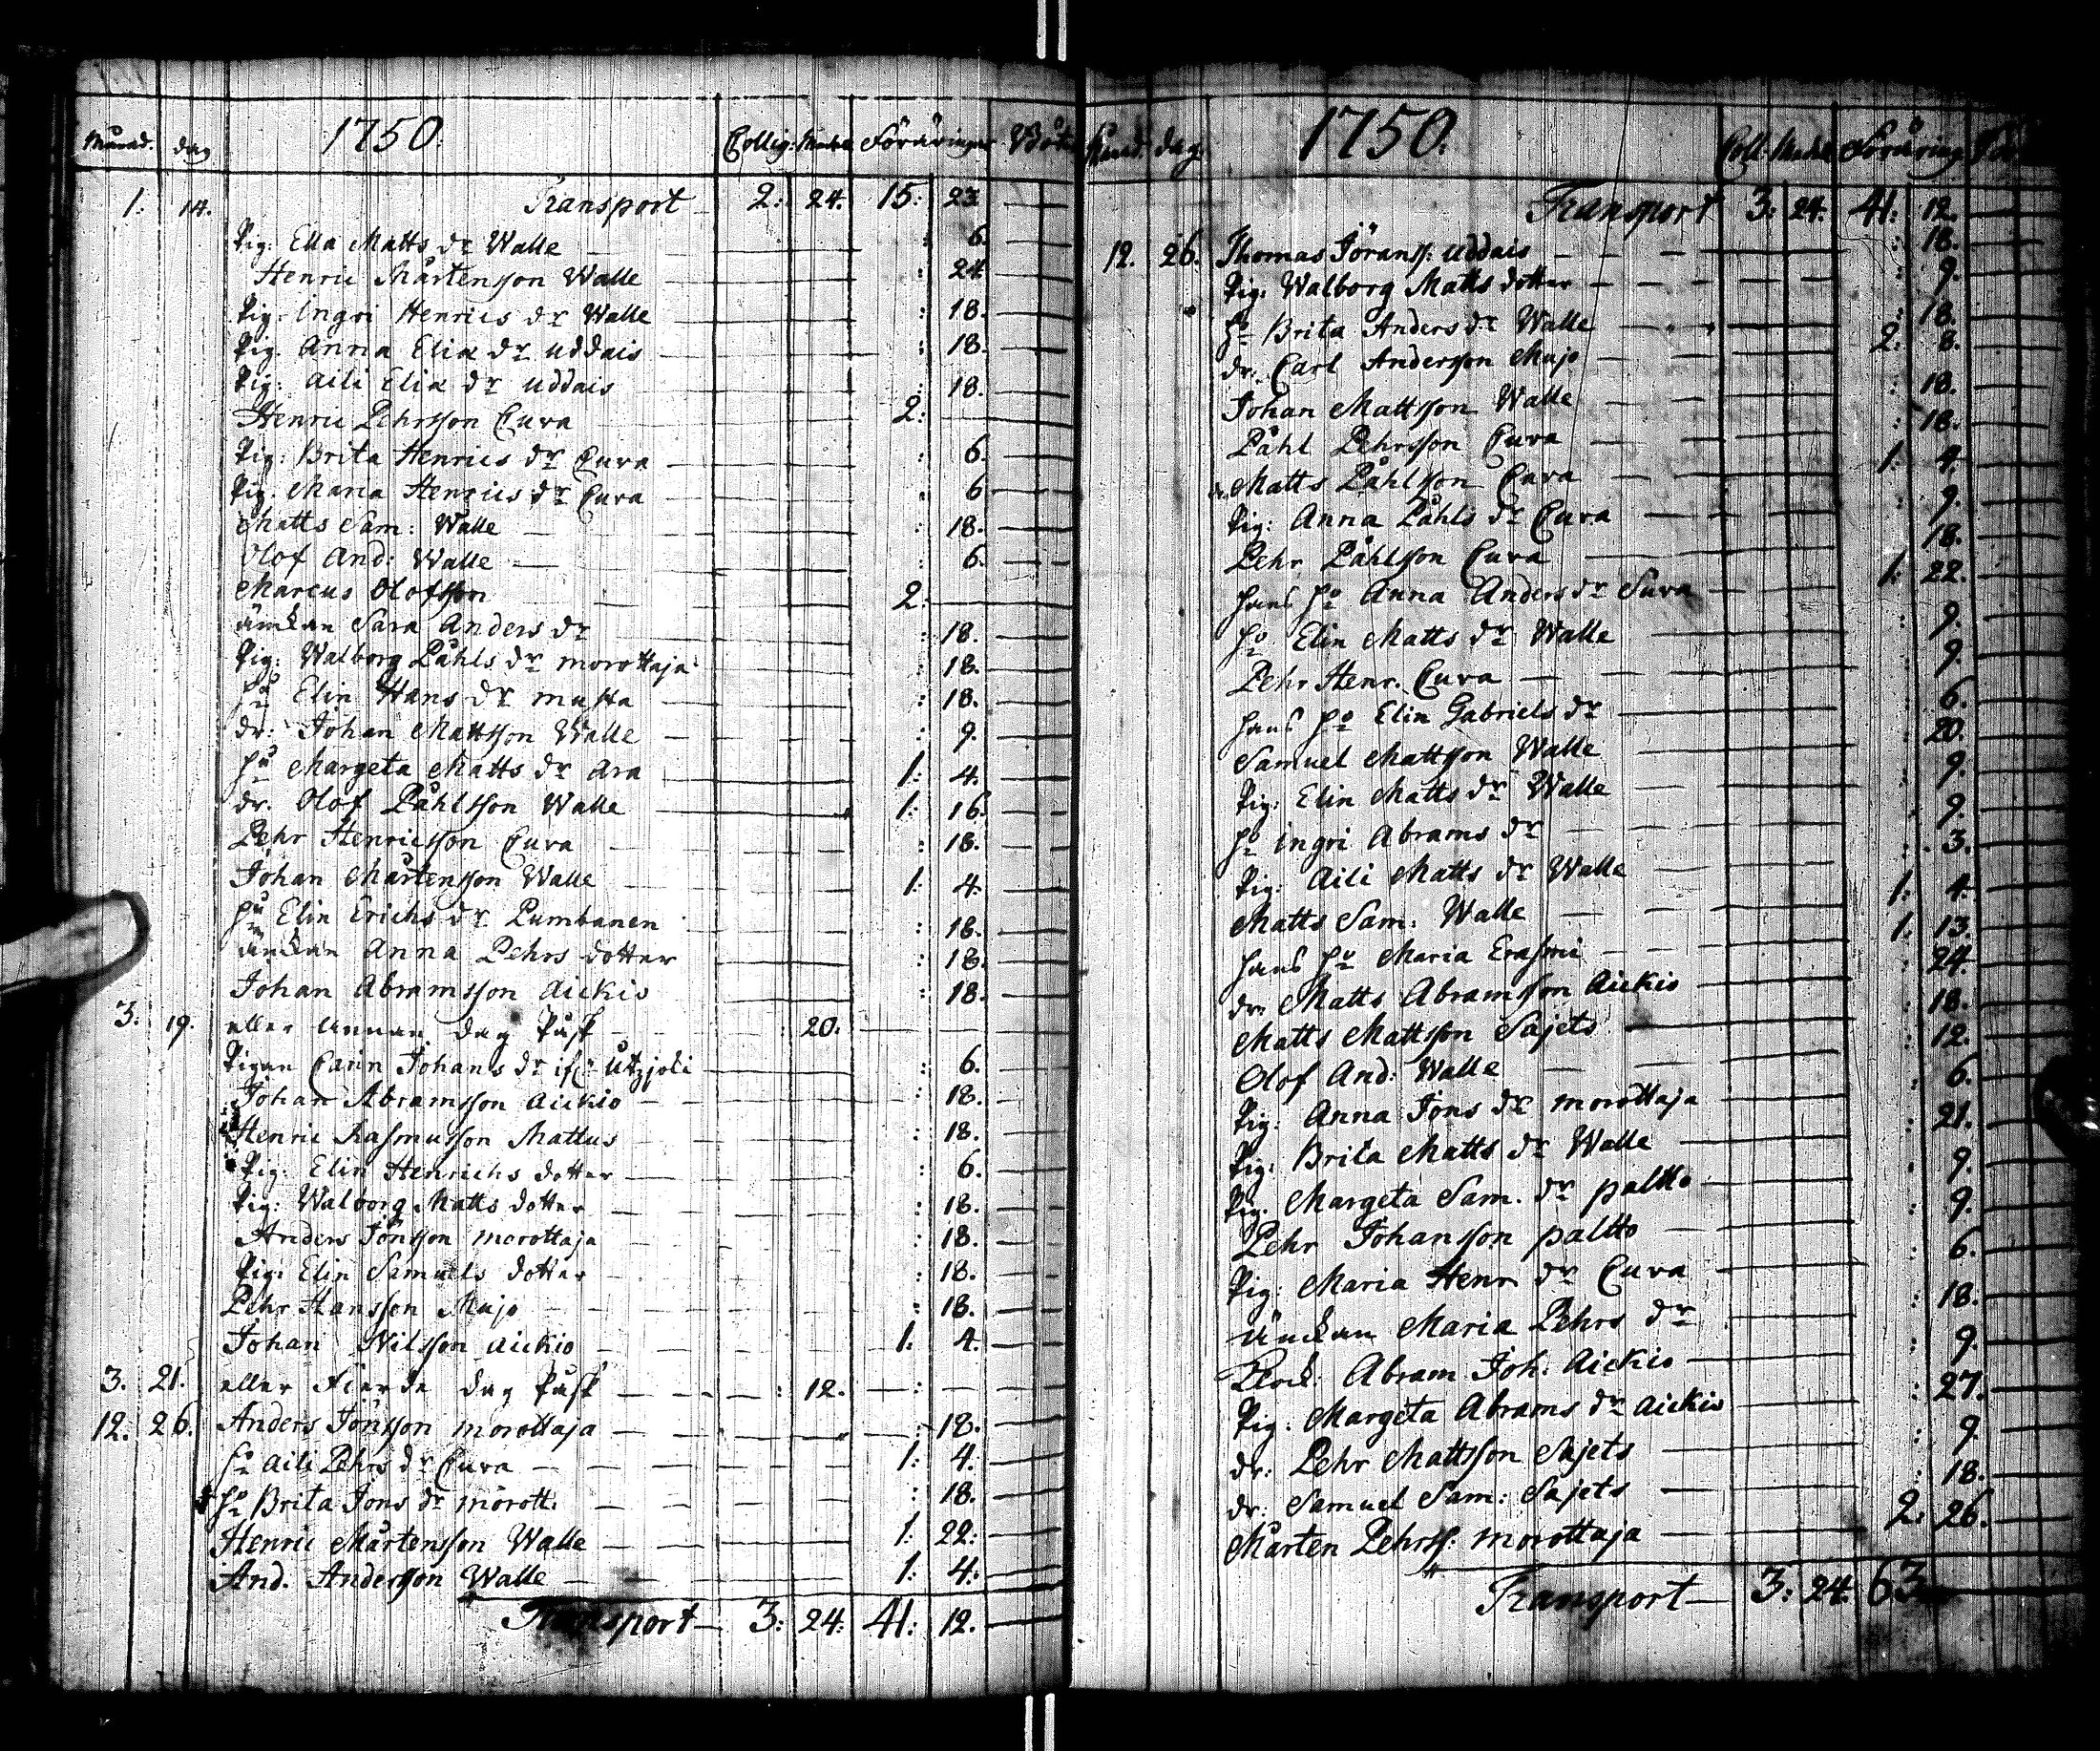 Månad. dag 1750. Collig: Föräringar Böt
1: 14. Transport 2: 24. 15: 23.
Pig: Ella Matts dr Walle : 6.
Henric Mårtensson Walle : 24.
Pig: Ingri Henrics dr Walle : 18.
Pig. Anna Eliæ dr Uddais : 18.
Pig: Aili Eliæ dr Uddais : 18.
Henric Pehrsson Cuva 2:
Pig: Brita Henrics dr Cuva : 6.
Pig. Maria Henrics dr Cuva : 6
Matts Sam: Walle : 18.
Olof And: Walle : 6.
Marcus Olofsson 2:
änckan Sara Anders dr : 18.
Pig: Walborg Påhls dr morottaja : 18.
hu Elin Hans dr musta : 18.
dr: Johan Mattsson Walle : 9.
hu Margeta Matts dr Ara 1: 4.
dr. Olof Påhlsson Walle 1: 16.
Pehr Henricsson Cuva : 18.
Johan Mårtensson Walle 1: 4.
hu Elin Erichs dr Pumbanen : 18.
änckan Anna Pehrs dotter : 18.
Johan Abramsson Aickio : 18.
3: 19. eller annan dag Påsk : 20.
Pigan Carin Johans dr ifr Utzjoki : 6.
Johan Abramsson Aickio : 18.
Henric Rasmusson Mattus : 18.
Pig: Elin Henrichs dotter : 6.
Pig: Walborg Matts dotter : 18.
Anders Jönsson morottaja : 18.
Pig: Elin Samuels dotter : 18.
Pehr Hansson Mujo : 18.
Johan Nilsson Aickio 1: 4.
3. 21. eller Fierde dag Påsk : 12.
12. 26. Anders Jönsson morottaja : 18.
hu Aili Pehrs dr Cuva 1: 4.
hu Brita Jons dr morott: : 18.
Henric Mårtensson Walle 1: 22.
And. Andersson Walle 1: 4.
Transport 3: 24: 41: 12.
dag. 1750. Coll. Föräring
Transport 3: 24: 41: 12.
12. 26. Thomas Jöranss: Uddais : 18.
Pig: Walborg Matts dotter : 9.
hu Brita Anders dr Walle : 18.
dr. Carl Andersson Mujo 2: 8.
Johan Mattsson Walle : 18.
Påhl Pehrsson Cuva : 18.
Matts Påhlsson Cuva 1: 4.
Pig: Anna Påhls dr Cuva : 9.
Pehr Påhlsson Cuva 18.
hans hu Anna Anders dr Suva 1: 22.
hu Elin Matts dr Walle : 9.
Pehr Henr. Cuva 9.
hans hu Elin Gabriels dr : 6.
Samuel Mattsson Walle : 20.
Pig: Elin Matts dr Walle : 9.
hu Ingri Abrams dr : 9.
Pig: Aili Matts dr Walle : 3.
Matts Sam: Walle 1: 4.
hans hu Maria Erasmi 1: 13.
dr. Matts Abramsson Aickio : 24.
Matts Mattsson Sajets : 18.
Olof And: Walle : 12.
Pig: Anna Jons dr morottaja : 6.
Pig: Brita Matts dr Walle : 21.
Pig. Margeta Sam. dr paltto : 9.
Pehr Johansson paltto : 9.
Pig: Maria Henr dr Cuva : 6.
änckan Maria Pehrs dr : 18.
Klock: Abram Joh: Aickio : 9.
Pig: Margeta Abrams dr Aickio : 27.
dr: Pehr Mattsson Sajets : 9.
dr: Samuel Sam: Sajets : 18.
Mårten Pehrss: morottaja 2: 26.
Transport 3: 24. 63